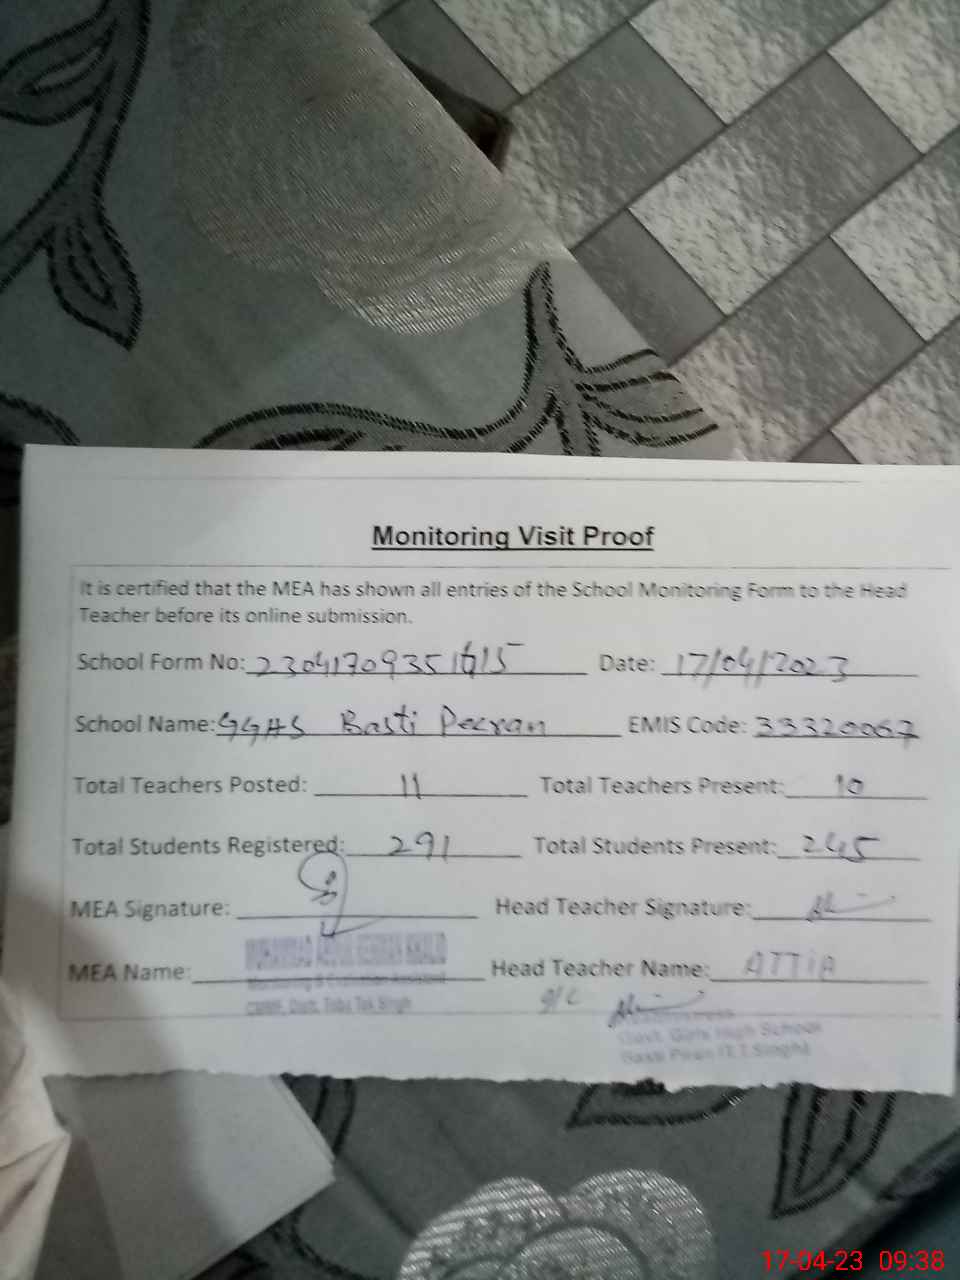 Monitoring Visit Proof
It is certified that the MEA has shown all entries of the School Monitoring Form to the Head
Teacher before its online submission.
School Form No: Date: 17/04/2023
School Name: GGHS Basti Peeran EMIS Code: 33320067
Total Teachers Posted: 11 Total Teachers Present: 10
Total Students Registered: 291 Total Students Present: 245
MEA Signature: Head Teacher Signature:
MEA Name: Head Teacher Name: ATTIA
Monitoring & Evaluation Assistant
Distt. Toba Tek Singh
Govt. Girls High School
Basti Piran (T.T.Singh)
17-04-23 09:38